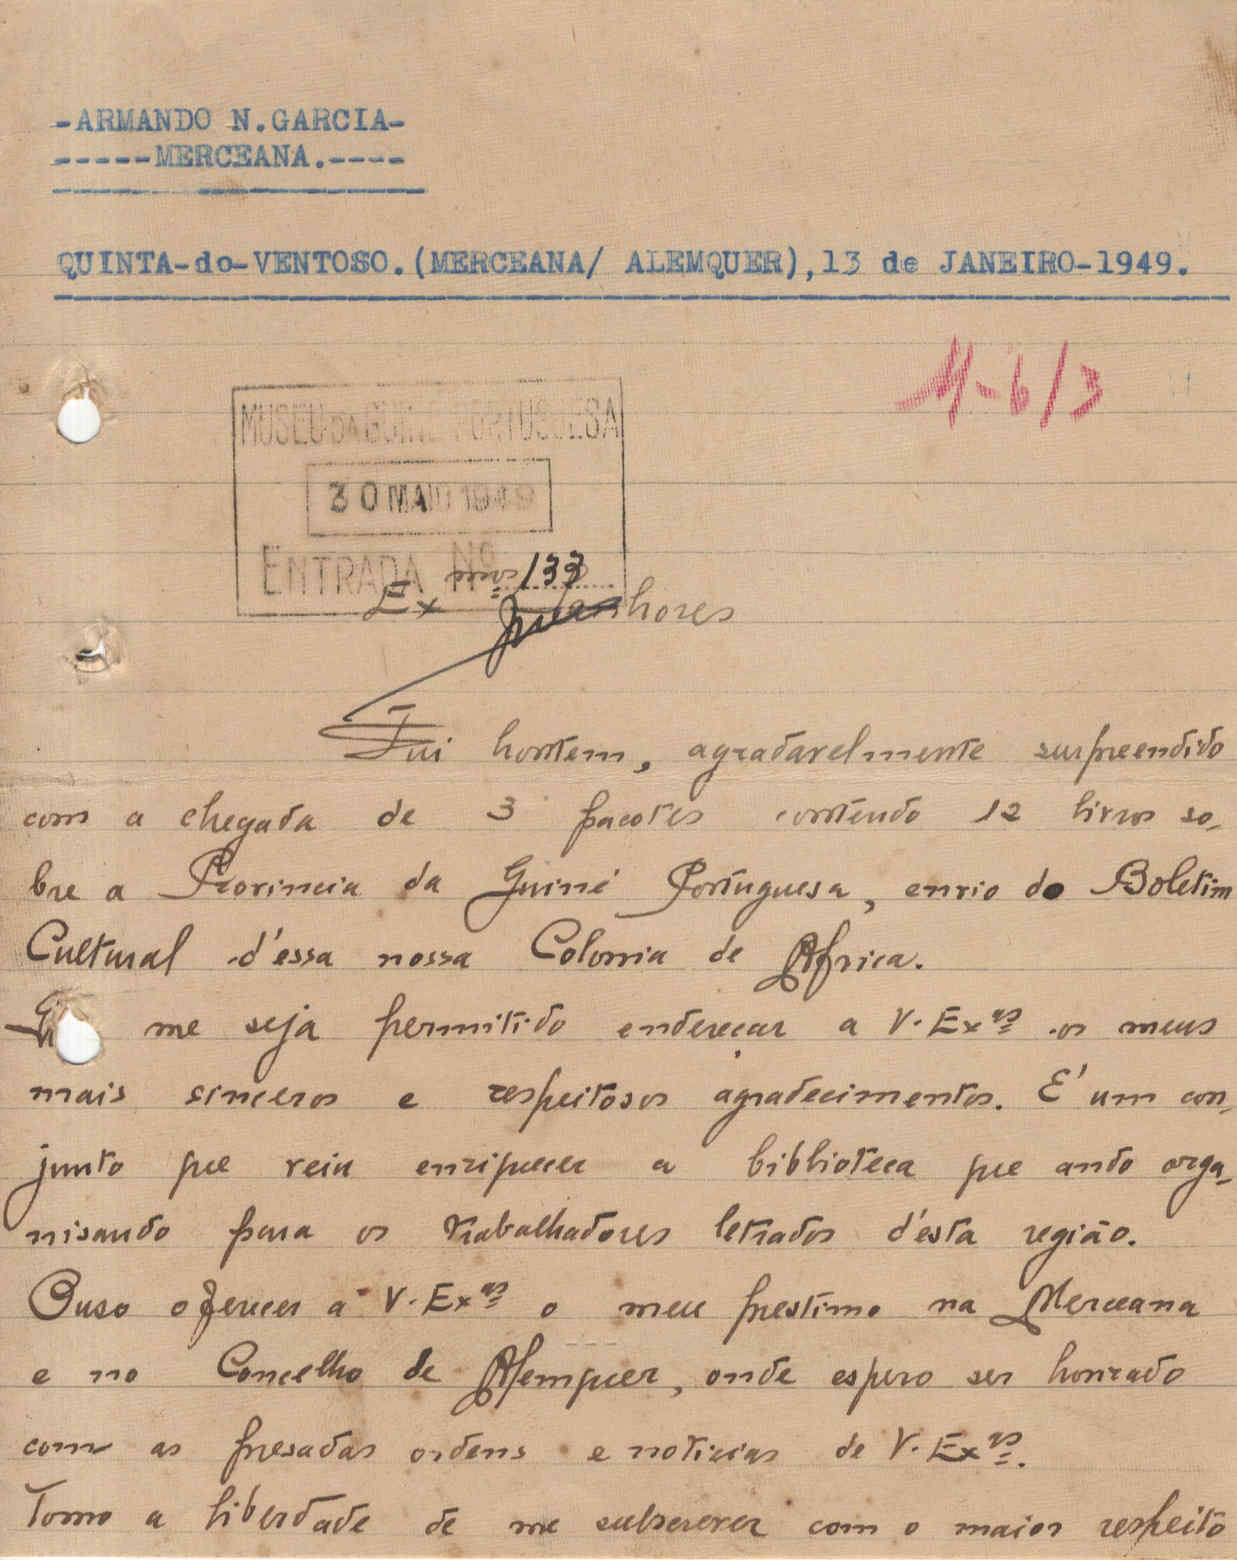 -ARMANDO N.GARCIA-
-----MERCEANA.----
QUINTA-do-VENTOSO.(MERCEANA/ ALEMQUER),13 de JANEIRO-1949.
4-6/3
MUSEU DA GUINÉ PORTUGUESA
30 MAIO 1949
ENTRADA Nº 133
Exmos Senhores
Fui hontem, agradavelmente surpreendido
com a chegada de 3 pacotes contendo 12 livros so-
bre a Provincia da Guiné Portuguesa, envio do Boletim
Cultural d'essa nossa Colonia de Africa.
me seja permitido endereçar a V. Exas os meus
mais sinceros e respeitosos agradecimentos. E' um con-
junto que veiu enriquecer a biblioteca que ando orga-
nisando para os trabalhadores letrados d'ésta região.
Ouso oferecer a V. Exas o meu prestimo na Merceana
e no Concelho de Alemquer, onde espero ser honrado
com as presadas ordens e noticias de V. Exas.
Tomo a liberdade de me subscrever com o maior respeito